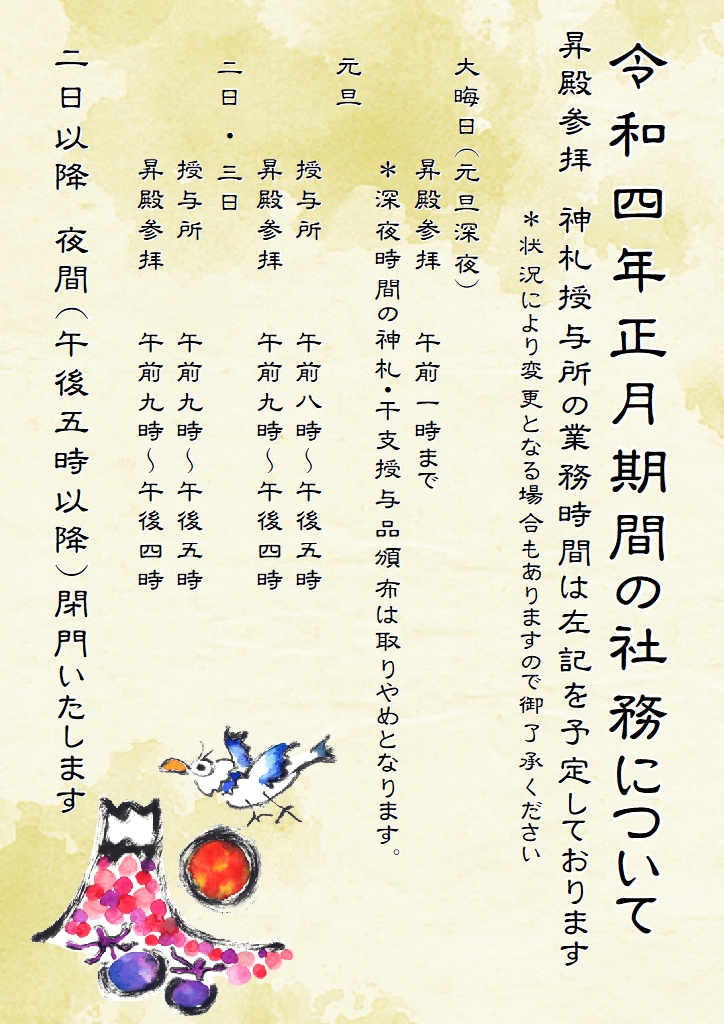 令和四年正月期間の社務について
昇殿参拝 神札授与所の業務時間は左記を予定しております
＊状況により変更となる場合もありますので御了承ください
大晦日（元旦深夜）
昇殿参拝 午前一時まで
＊深夜時間の神札・干支授与品頒布は取りやめとなります。
元旦
授与所 午前八時～午後五時
昇殿参拝 午前九時～午後四時
二日・三日
授与所 午前九時～午後五時
昇殿参拝 午前九時～午後四時
二日以降 夜間（午後五時以降）閉門いたします